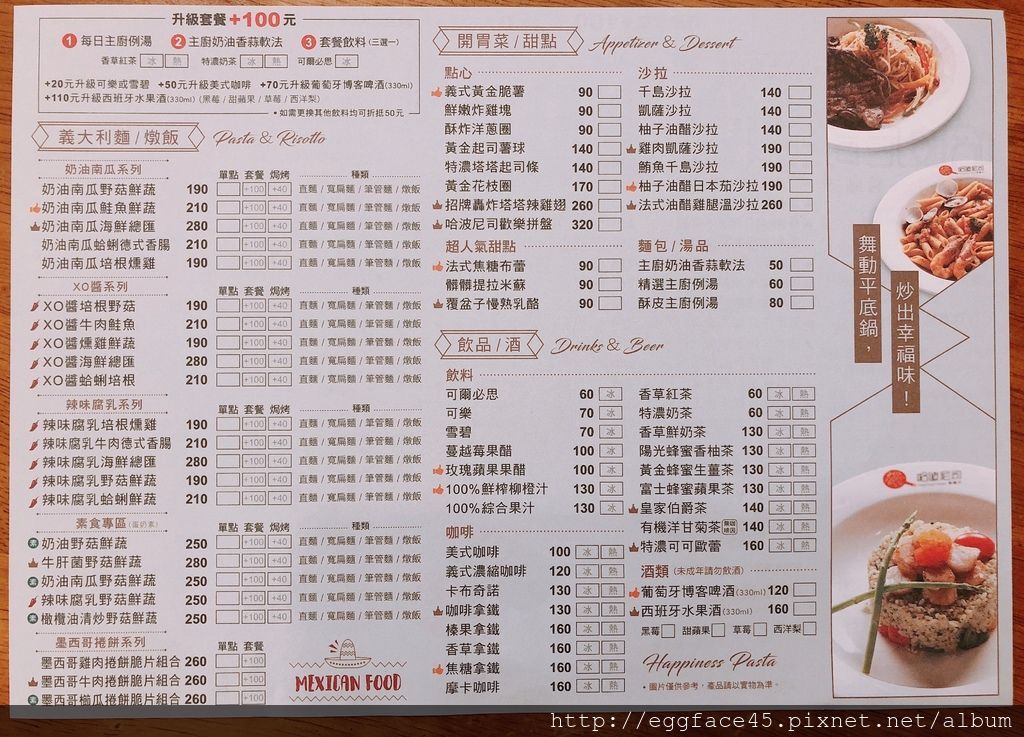 升級套餐+100元
1 每日主廚例湯 2 主廚奶油香蒜軟法 3 套餐飲料(三選一)
香草紅茶 冰 熱 特濃奶茶 冰 熱 可爾必思 冰
+20元升級可樂或雪碧 +50元升級美式咖啡 +70元升級葡萄牙博客啤酒(330ml)
+110元升級西班牙水果酒(330ml) (黑莓 / 甜蘋果 / 草莓 / 西洋梨)
• 如需更換其他飲料均可折抵50元
義大利麵 / 燉飯 Pasta & Risotto
奶油南瓜系列 單點 套餐 焗烤 種類
奶油南瓜野菇鮮蔬 190 +100 +40 直麵 / 寬扁麵 / 筆管麵 / 燉飯
奶油南瓜鮭魚鮮蔬 210 +100 +40 直麵 / 寬扁麵 / 筆管麵 / 燉飯
奶油南瓜海鮮總匯 280 +100 +40 直麵 / 寬扁麵 / 筆管麵 / 燉飯
奶油南瓜蛤蜊德式香腸 210 +100 +40 直麵 / 寬扁麵 / 筆管麵 / 燉飯
奶油南瓜培根燻雞 190 +100 +40 直麵 / 寬扁麵 / 筆管麵 / 燉飯
XO醬系列 單點 套餐 焗烤 種類
XO醬培根野菇 190 +100 +40 直麵 / 寬扁麵 / 筆管麵 / 燉飯
XO醬牛肉鮭魚 210 +100 +40 直麵 / 寬扁麵 / 筆管麵 / 燉飯
XO醬燻雞鮮蔬 190 +100 +40 直麵 / 寬扁麵 / 筆管麵 / 燉飯
XO醬海鮮總匯 280 +100 +40 直麵 / 寬扁麵 / 筆管麵 / 燉飯
XO醬蛤蜊培根 210 +100 +40 直麵 / 寬扁麵 / 筆管麵 / 燉飯
辣味腐乳系列 單點 套餐 焗烤 種類
辣味腐乳培根燻雞 190 +100 +40 直麵 / 寬扁麵 / 筆管麵 / 燉飯
辣味腐乳牛肉德式香腸 210 +100 +40 直麵 / 寬扁麵 / 筆管麵 / 燉飯
辣味腐乳海鮮總匯 280 +100 +40 直麵 / 寬扁麵 / 筆管麵 / 燉飯
辣味腐乳野菇鮮蔬 190 +100 +40 直麵 / 寬扁麵 / 筆管麵 / 燉飯
辣味腐乳蛤蜊鮮蔬 210 +100 +40 直麵 / 寬扁麵 / 筆管麵 / 燉飯
素食專區(蛋奶素) 單點 套餐 焗烤 種類
素 奶油野菇鮮蔬 250 +100 +40 直麵 / 寬扁麵 / 筆管麵 / 燉飯
牛肝菌野菇鮮蔬 280 +100 +40 直麵 / 寬扁麵 / 筆管麵 / 燉飯
素 奶油南瓜野菇鮮蔬 250 +100 +40 直麵 / 寬扁麵 / 筆管麵 / 燉飯
辣味腐乳野菇鮮蔬 250 +100 +40 直麵 / 寬扁麵 / 筆管麵 / 燉飯
素 橄欖油清炒野菇鮮蔬 250 +100 +40 直麵 / 寬扁麵 / 筆管麵 / 燉飯
墨西哥捲餅系列 單點 套餐
墨西哥雞肉捲餅脆片組合 260 +100
墨西哥牛肉捲餅脆片組合 260 +100
素 墨西哥櫛瓜捲餅脆片組合 260 +100
MEXICAN FOOD
開胃菜 / 甜點 Appetizer & Dessert
點心
義式黃金脆薯 90
鮮嫩炸雞塊 90
酥炸洋蔥圈 90
黃金起司薯球 140
特濃塔塔起司條 140
黃金花枝圈 170
招牌轟炸塔塔辣雞翅 260
哈波尼司歡樂拼盤 320
沙拉
千島沙拉 140
凱薩沙拉 140
柚子油醋沙拉 140
雞肉凱薩沙拉 190
鮪魚千島沙拉 190
柚子油醋日本茄沙拉 190
法式油醋雞腿溫沙拉 260
超人氣甜點
法式焦糖布蕾 90
髒髒提拉米蘇 90
覆盆子慢熟乳酪 90
麵包 / 湯品
主廚奶油香蒜軟法 50
精選主廚例湯 60
酥皮主廚例湯 80
飲品 / 酒 Drinks & Beer
飲料
可爾必思 60 冰
可樂 70 冰
雪碧 70 冰
蔓越莓果醋 100 冰
玫瑰蘋果果醋 100 冰
100%鮮榨柳橙汁 130 冰
100%綜合果汁 130 冰
香草紅茶 60 冰 熱
特濃奶茶 60 冰 熱
香草鮮奶茶 130 冰 熱
陽光蜂蜜香柚茶 130 冰 熱
黃金蜂蜜生薑茶 130 冰 熱
富士蜂蜜蘋果茶 130 冰 熱
皇家伯爵茶 140 冰 熱
有機洋甘菊茶 無咖啡因 140 冰 熱
特濃可可歐蕾 160 冰 熱
咖啡
美式咖啡 100 冰 熱
義式濃縮咖啡 120 冰 熱
卡布奇諾 130 冰 熱
咖啡拿鐵 130 冰 熱
榛果拿鐵 160 冰 熱
香草拿鐵 160 冰 熱
焦糖拿鐵 160 冰 熱
摩卡咖啡 160 冰 熱
酒類 (未成年請勿飲酒)
葡萄牙博客啤酒(330ml) 120
西班牙水果酒(330ml) 160
黑莓 甜蘋果 草莓 西洋梨
Happiness Pasta
• 圖片僅供參考，產品請以實物為準。
舞動平底鍋，
炒出幸福味！
http://eggface45.pixnet.net/album